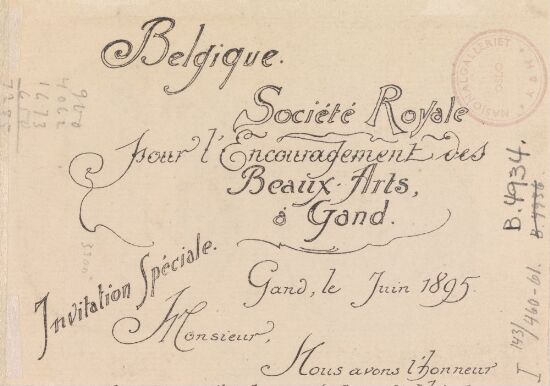 Belgique.
Société Royale
pour l'Encouragement des
Beaux-Arts,
à Gand.
Invitation Spéciale.
Gand, le Juin 1895.
Monsieur,
Nous avons l'honneur
NASJONALGALLERIET
OSLO
B.4934.
143/460-61.
I
940
4062
1673